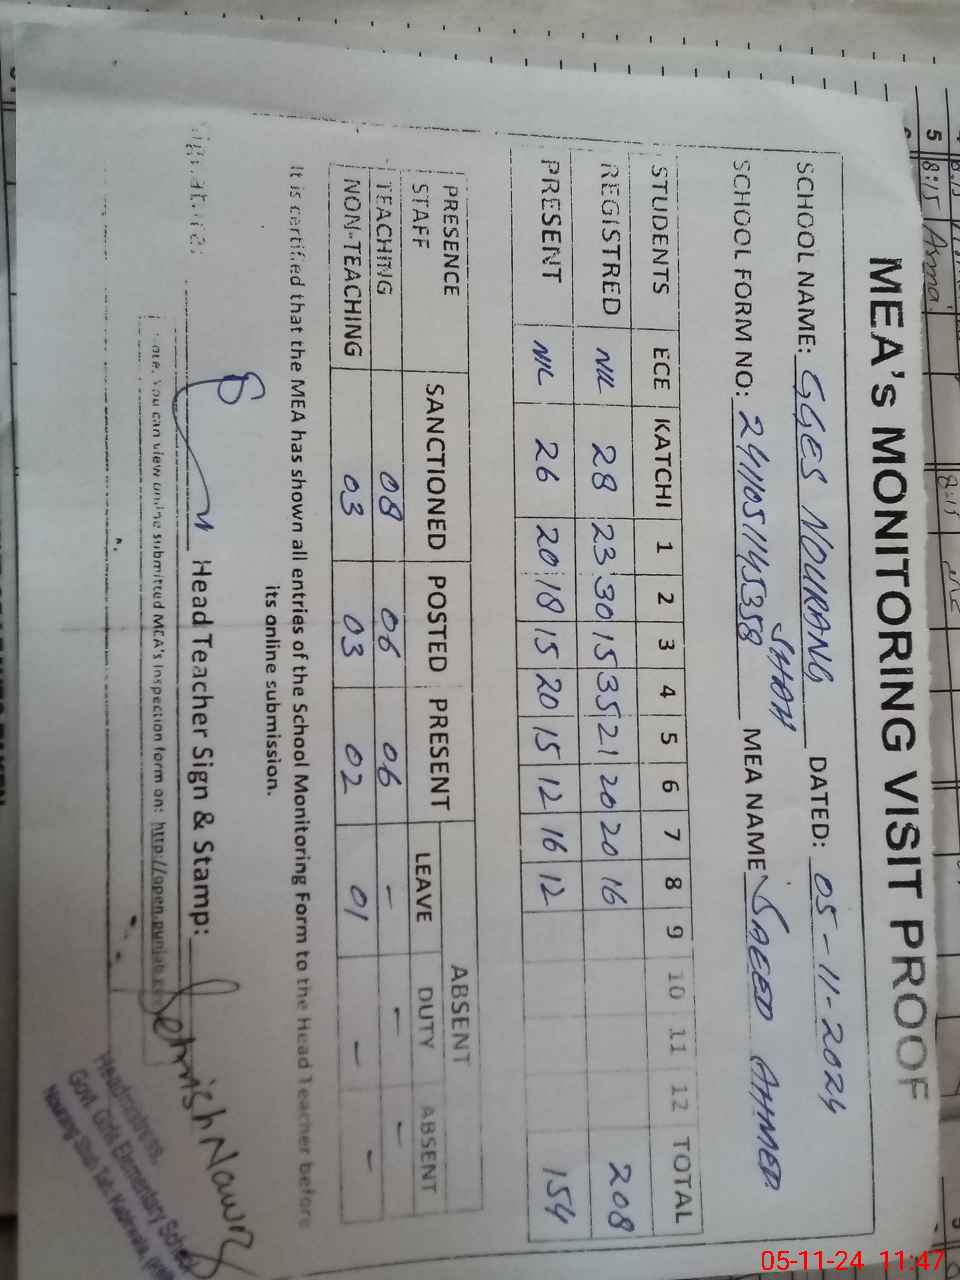 MEA's MONITORING VISIT PROOF
SCHOOL NAME: GGES NOURANG SHAH DATED: 05-11-2024
SCHOOL FORM NO: 241105114535358 MEA NAME SAEED AHMED
STUDENTS ECE KATCHI 1 2 3 4 5 6 7 8 9 10 11 12 TOTAL
REGISTRED NIL 28 23 30 15 35 21 20 20 16 208
PRESENT NIL 26 20 18 15 20 15 12 16 12 154
PRESENCE SANCTIONED POSTED PRESENT ABSENT
STAFF LEAVE DUTY ABSENT
TEACHING 08 06 06 - - -
NON-TEACHING 03 03 02 01 - -
It is certified that the MEA has shown all entries of the School Monitoring Form to the Head Teacher before
its online submission.
Signature: Head Teacher Sign & Stamp: Sehrish Nawaz
Note. You can view online submitted MEA's inspection form on: http://open.punjab.gov
Headmistress,
Govt. Girls Elementary School
Nourang Shah Teh.
5 8:15 Asma
8:15
05-11-24 11:47